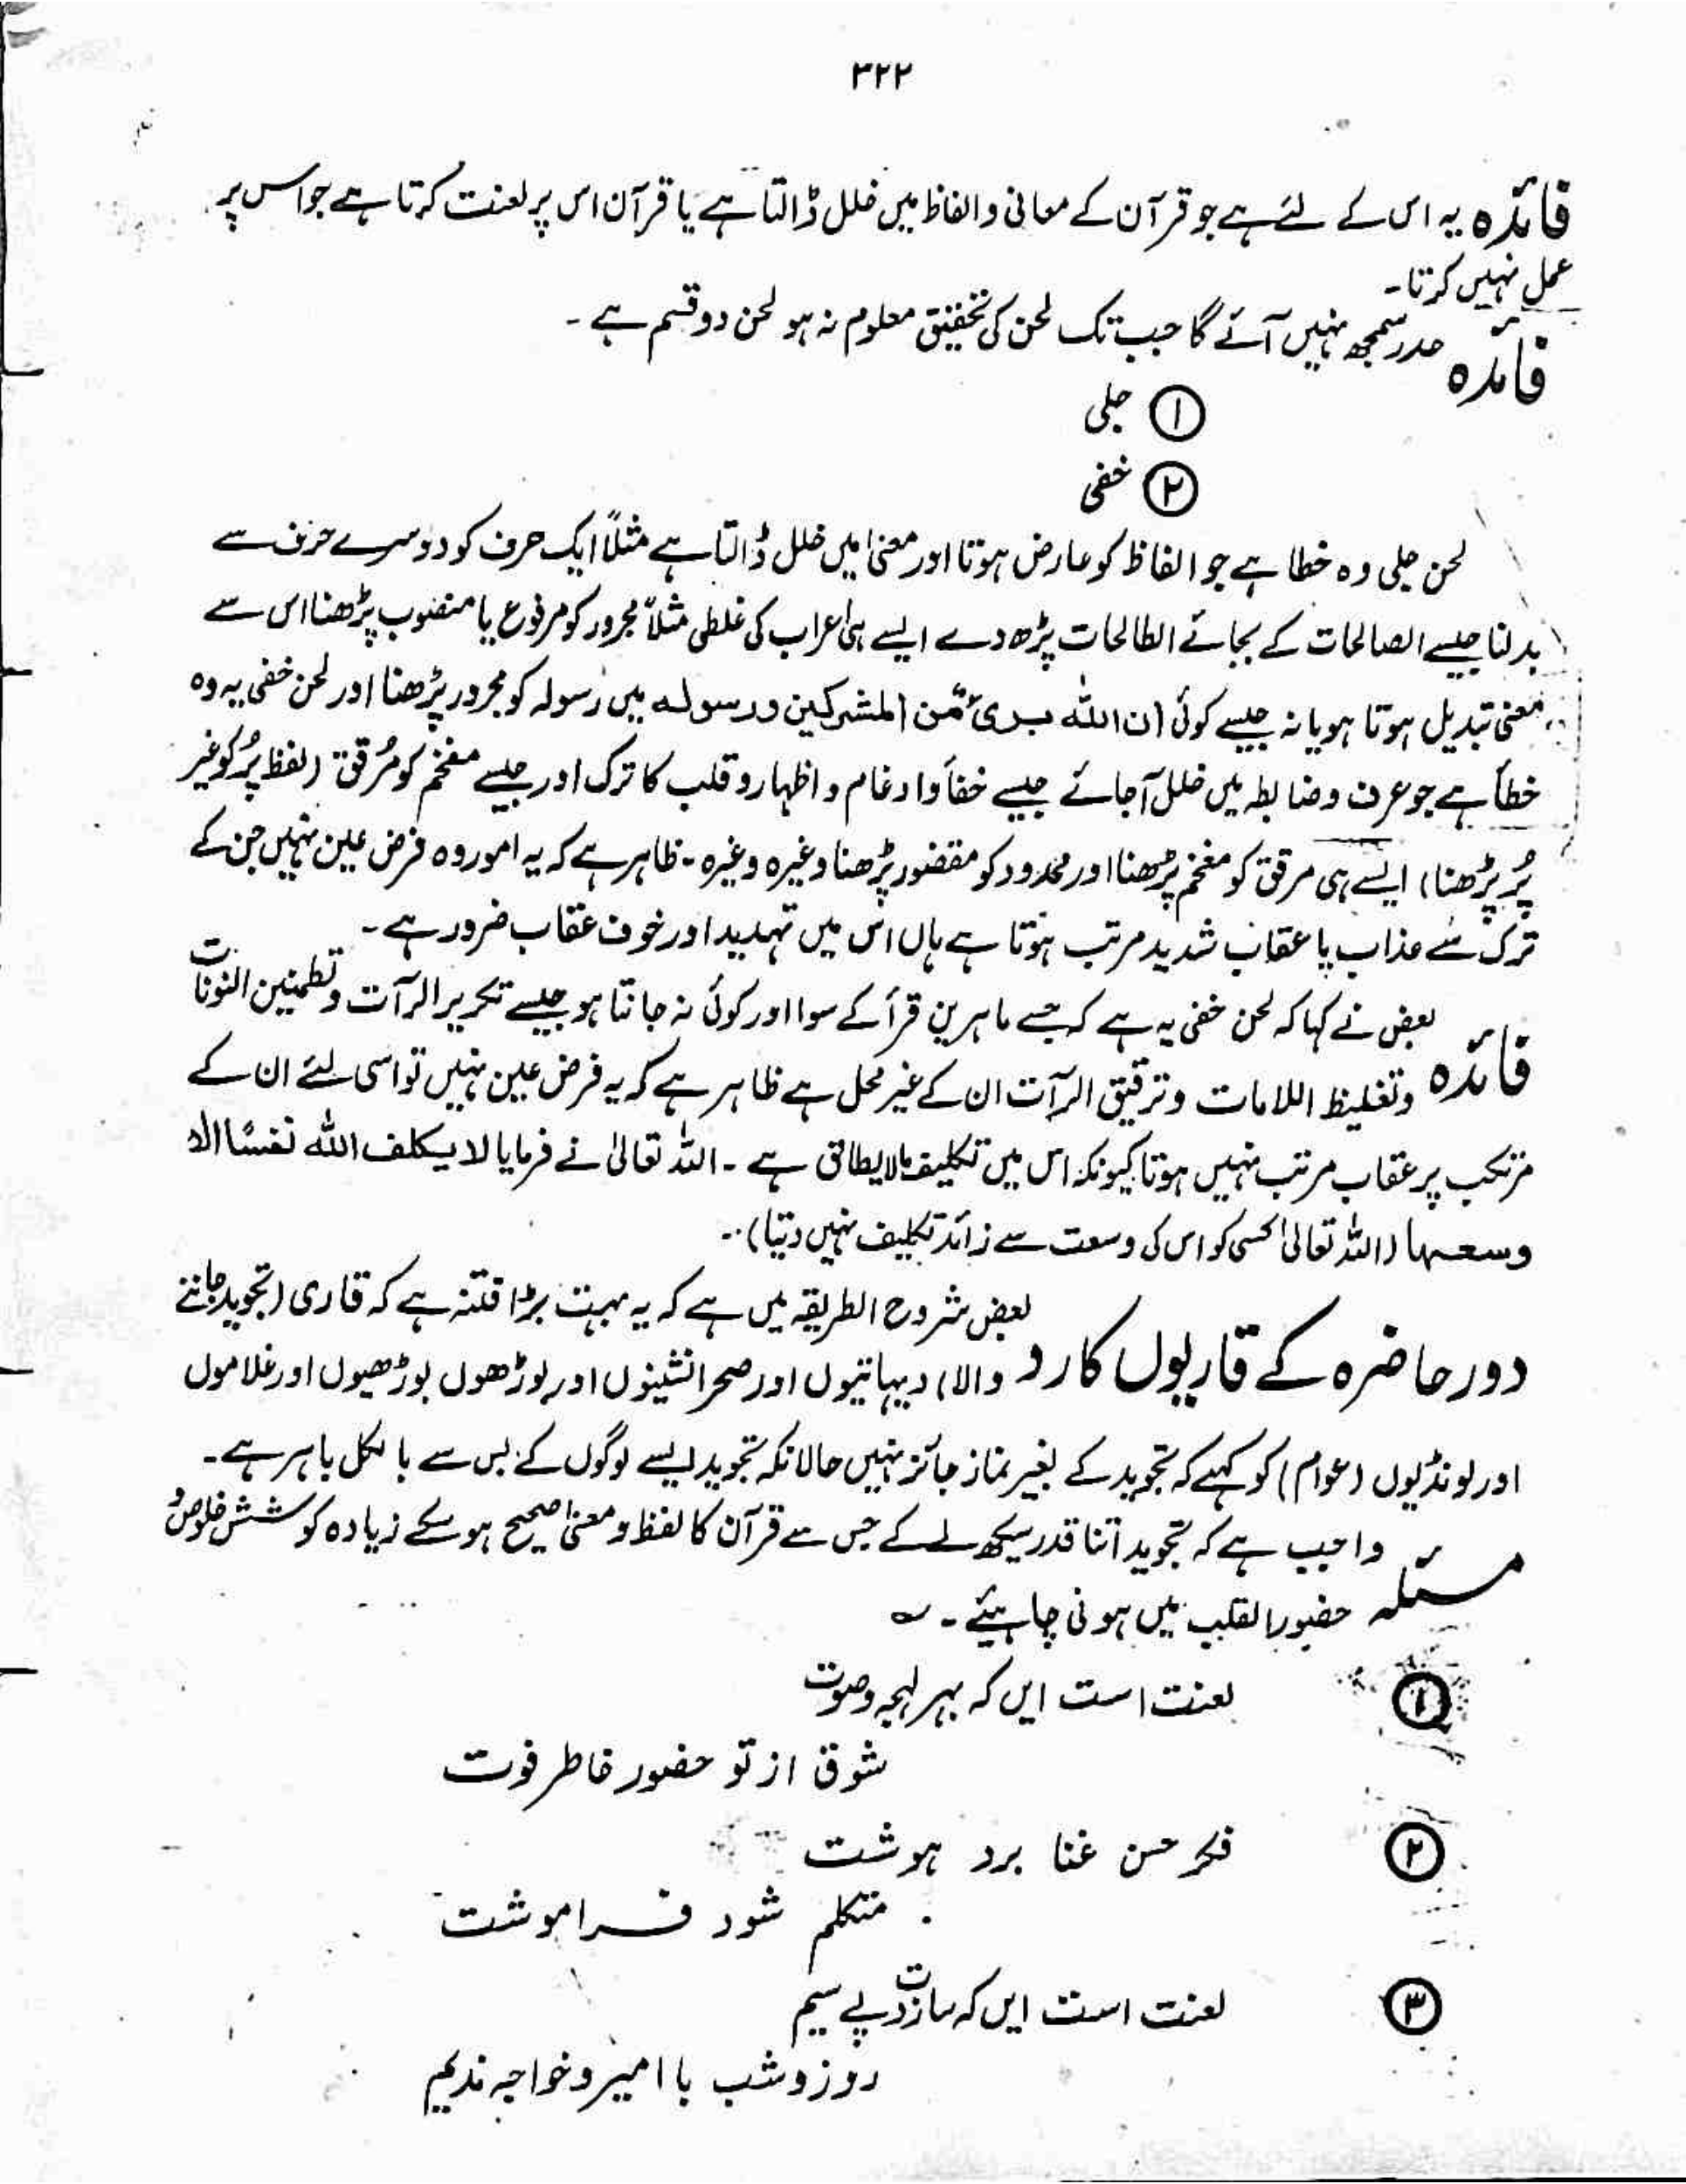 ۳۲۲
فائدہ یہ اس کے لئے ہے جو قرآن کے معانی و الفاظ میں خلل ڈالتا ہے یا قرآن اس پر لعنت کرتا ہے جو اس پر
عمل نہیں کرتا۔
فائدہ حدر سمجھ نہیں آئے گا جب تک لحن کی تحقیق معلوم نہ ہو لحن دو قسم ہے۔
① جلی
② خفی
لحن جلی وہ خطا ہے جو الفاظ کو عارض ہوتا اور معنیٰ میں خلل ڈالتا ہے مثلاً ایک حرف کو دوسرے حرف سے
بدلنا جیسے الصالحات کے بجائے الطالحات پڑھ دے ایسے ہی اعراب کی غلطی مثلاً مجرور کو مرفوع یا منصوب پڑھنا اس سے
معنی تبدیل ہوتا ہو یا نہ جیسے کوئی ان اللہ بریٔ من المشرکین ورسولہ میں رسولہ کو مجرور پڑھنا اور لحن خفی یہ وہ
خطأ ہے جو عرف و ضابطہ میں خلل آجائے جیسے خفأ وادغام و اظہار و قلب کا ترک اور جیسے مفخم کو مُرقق (لفظ پُر کو غیر
پُر پڑھنا) ایسے ہی مرقق کو مفخم پڑھنا اور ممدود کو مقصور پڑھنا وغیرہ وغیرہ۔ ظاہر ہے کہ یہ امور وہ فرض عین نہیں جن کے
ترک سے عذاب یا عقاب شدید مرتب ہوتا ہے ہاں اس میں تہدید اور خوف عقاب ضرور ہے۔
فائدہ بعض نے کہا کہ لحن خفی یہ ہے کہ جسے ماہرین قرأ کے سوا اور کوئی نہ جانتا ہو جیسے تکریر الرآت و تطمنین النونات
وتغلیظ اللامات و ترقیق الرآت ان کے غیر محل ہے ظاہر ہے کہ یہ فرض عین نہیں تو اسی لئے ان کے
مرتکب پر عقاب مرتب نہیں ہوتا کیونکہ اس میں تکلیف مالایطاق ہے۔ اللہ تعالیٰ نے فرمایا لا یکلف اللہ نفسًا الا
وسعہا (اللہ تعالیٰ کسی کو اس کی وسعت سے زائد تکلیف نہیں دیتا)۔
دور حاضرہ کے قاریوں کا رد بعض شروح الطریقہ میں ہے کہ یہ بہت بڑا فتنہ ہے کہ قاری (تجوید جاننے
والا) دیہاتیوں اور صحرا نشینوں اور بوڑھوں بوڑھیوں اور غلاموں
اور لونڈیوں (عوام) کو کہے کہ تجوید کے بغیر نماز جائز نہیں حالانکہ تجوید ایسے لوگوں کے بس سے بالکل باہر ہے۔
مسئلہ واجب ہے کہ تجوید اتنا قدر سیکھ لے کے جس سے قرآن کا لفظ و معنیٰ صحیح ہو سکے زیادہ کوشش خلوص و
حضور القلب میں ہونی چاہیئے۔ ؎
① لعنت است ایں کہ بہر لہجہ و صوت
شوق از تو حضور خاطر فوت
② فکر حسن غنا برد ہوشت
متکلم شود فراموشت
③ لعنت است ایں کہ سازدت پے سیم
روز و شب با امیر و خواجہ ندیم